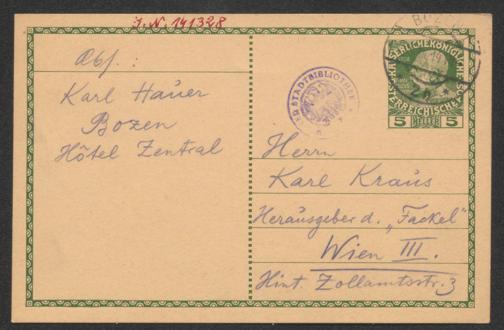 J. N. 141328
Abs. :
Karl Hauer
Bozen
Hôtel Zentral
STADTBIBLIOTHEK
KAISERLICHE KÖNIGLICHE
ÖSTERREICHISCHE
5 HELLER 5
Herrn
Karl Kraus
Herausgeber d. „Fackel"
Wien III.
Hint. Zollamtsstr. 3